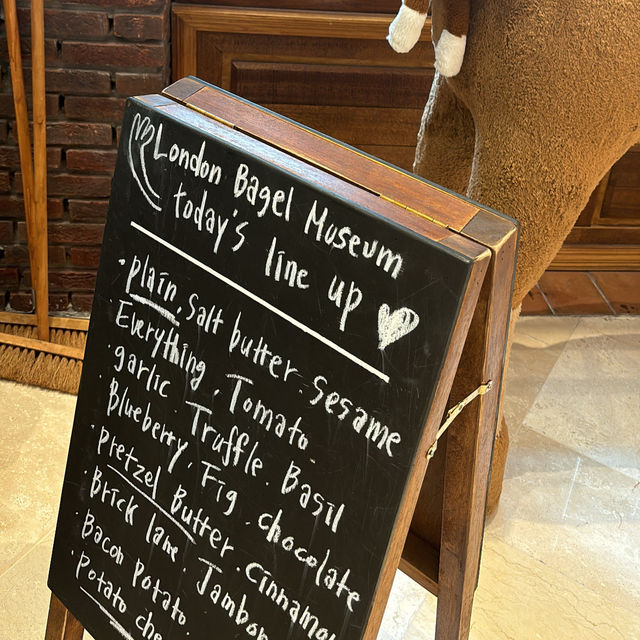 London Bagel Museum
today's line up
· plain. Salt butter. Sesame
· Everything. Tomato.
· garlic. Truffle. Basil
· Blueberry. Fig. chocolate
· pretzel Butter. cinnamon
· Brick lane. Jambon
· Bacon potato.
· potato che